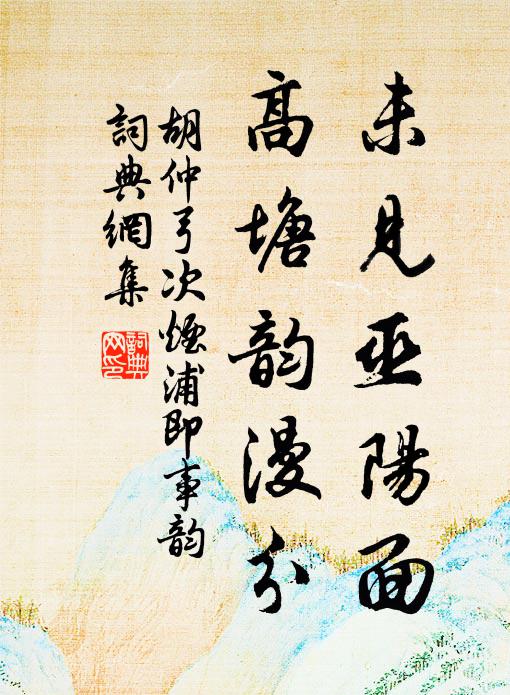 未見巫陽面
高塘韵漫分
胡仲弓次煙浦即事韵
詞典網集
詞典網印